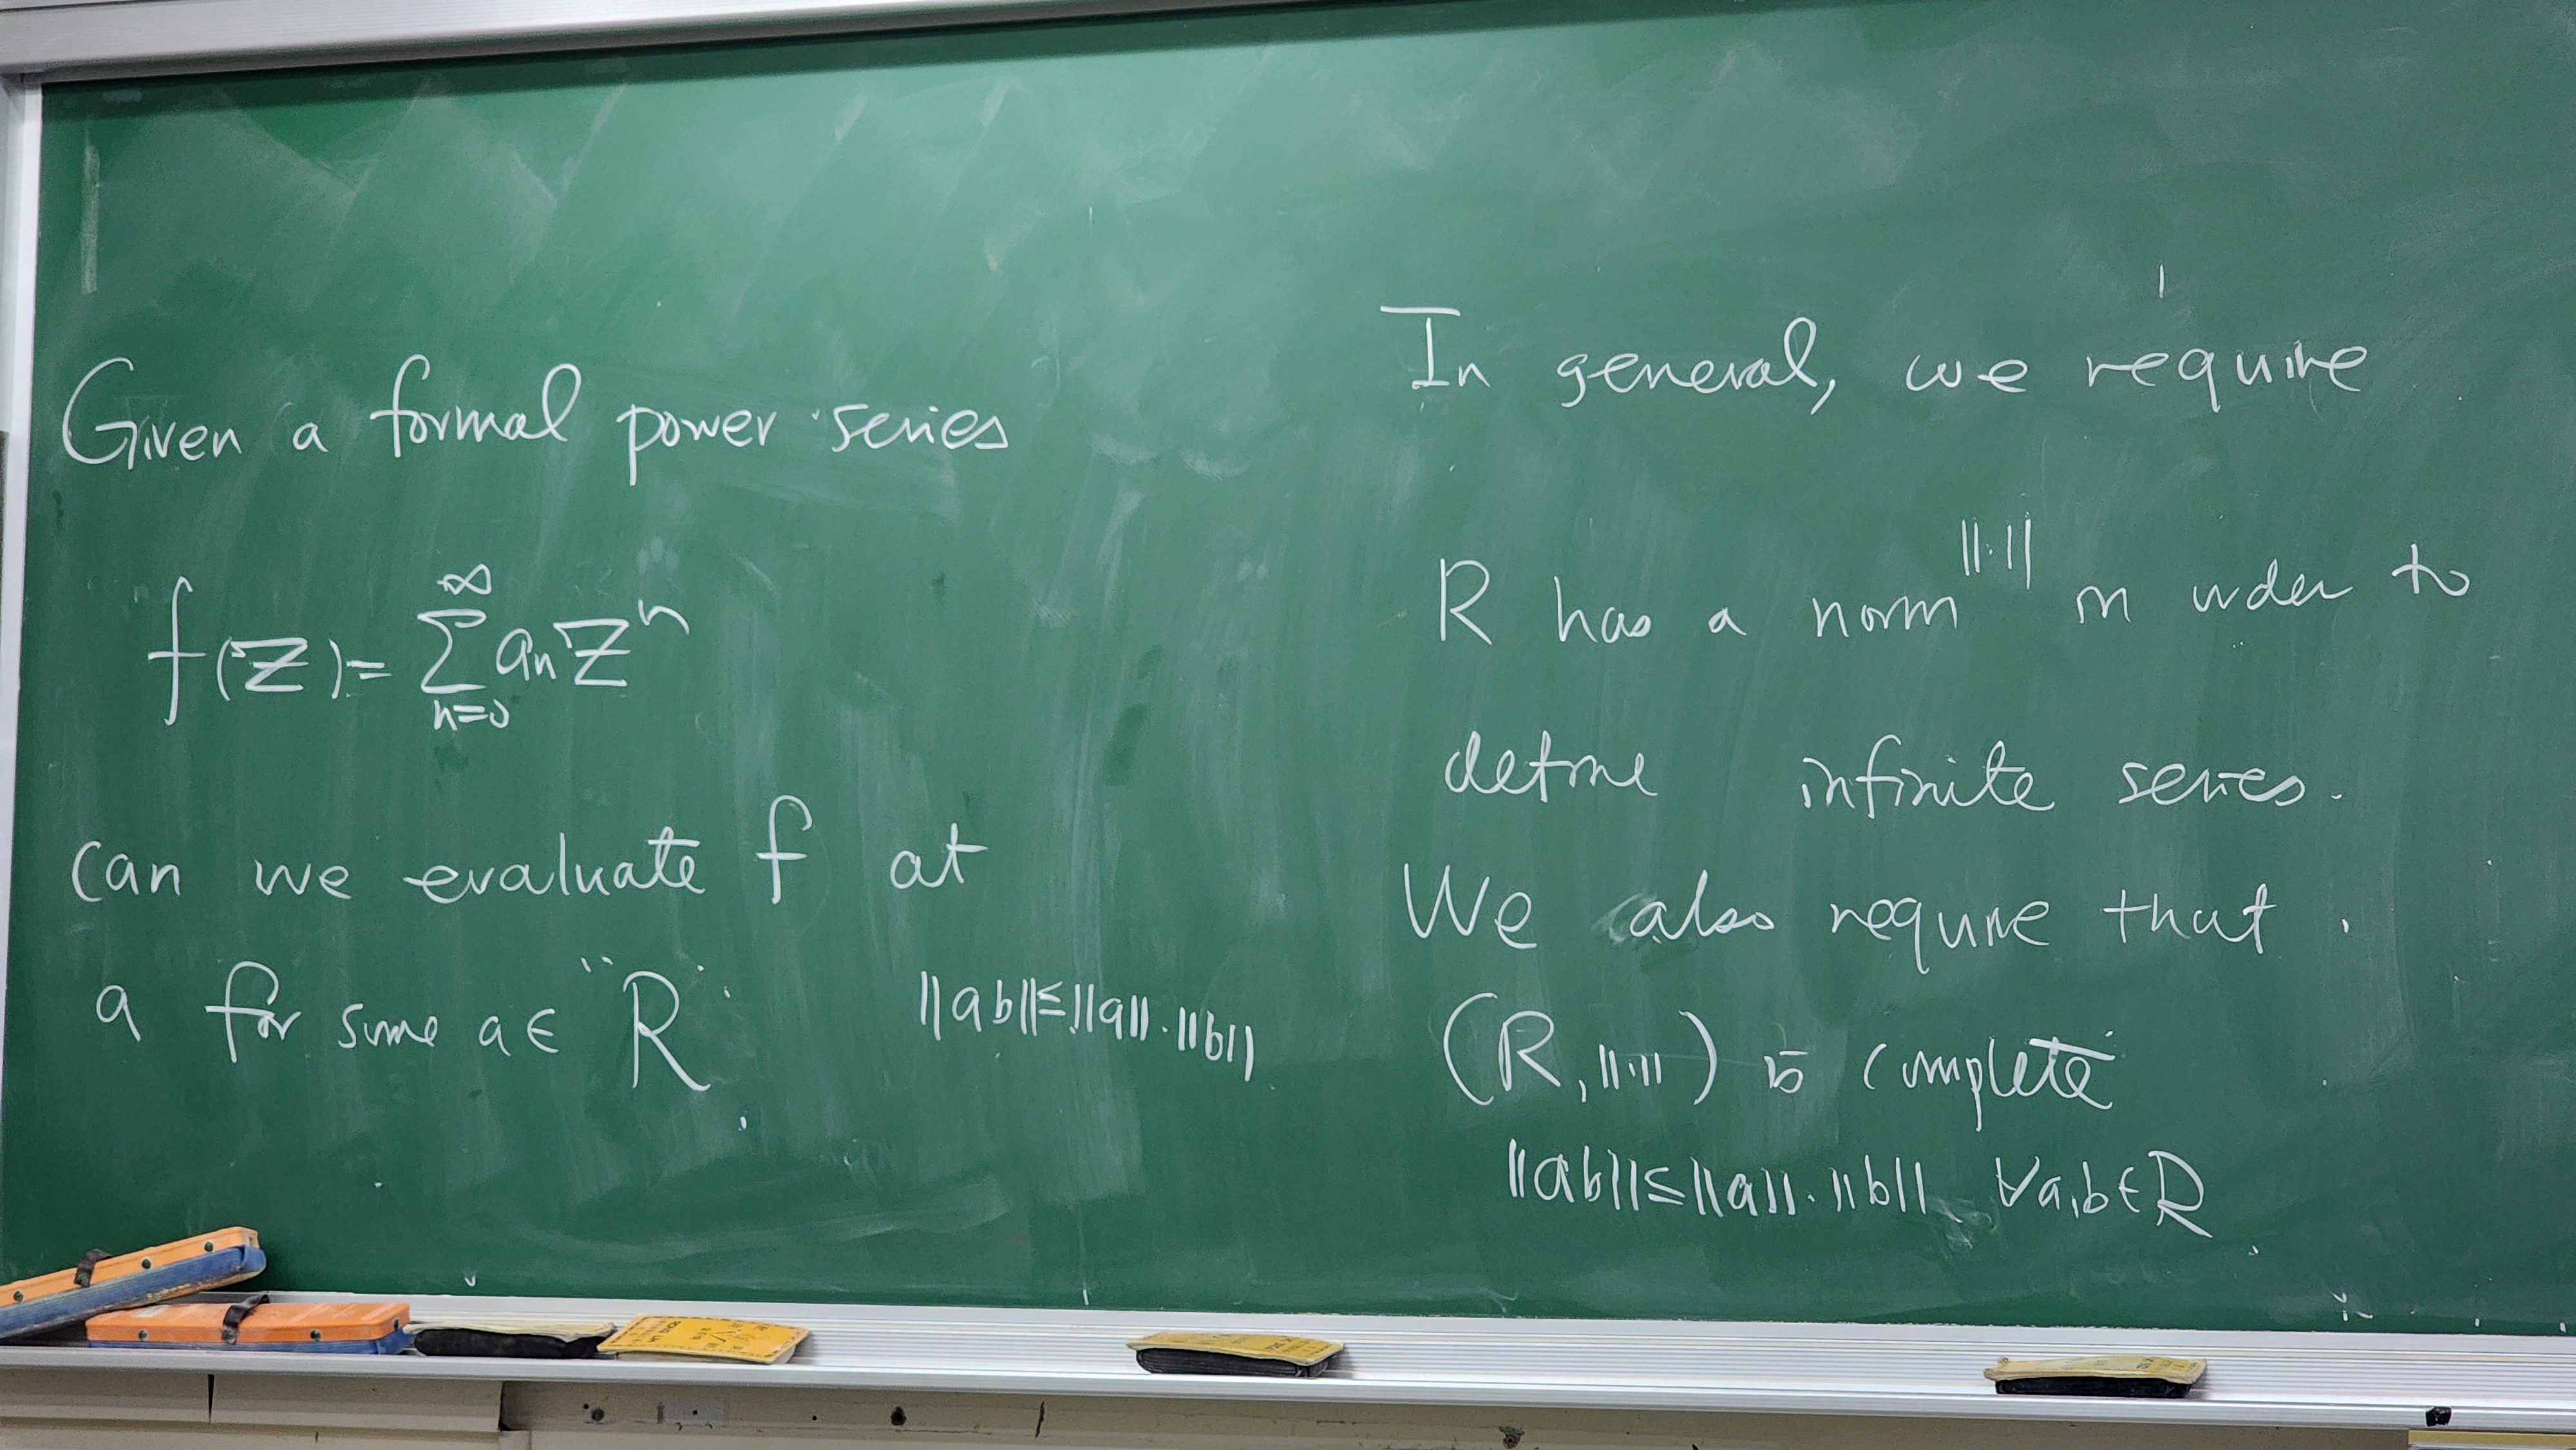 Given a formal power series
f(z) = ∑_{n=0}^{∞} a_n z^n
can we evaluate f at
a for some a ∈ "R"
||ab|| ≤ ||a|| · ||b||
In general, we require
R has a norm ||·|| in order to
define infinite series.
We also require that
(R, ||·||) is complete
||ab|| ≤ ||a|| · ||b|| ∀a,b ∈ R